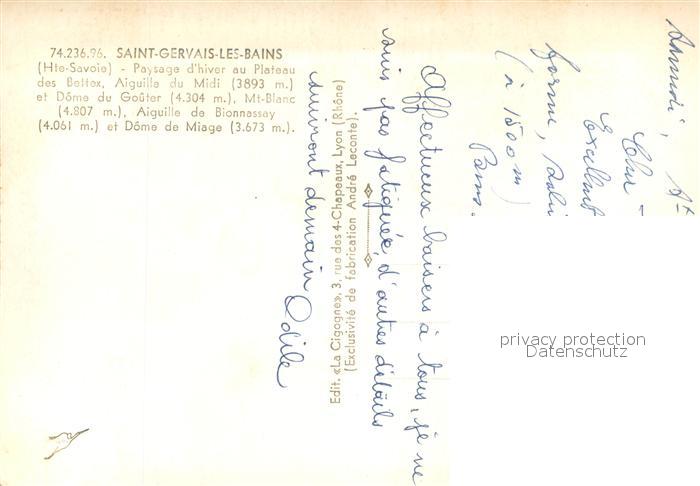 74.236.96. SAINT-GERVAIS-LES-BAINS
(Hte-Savoie) - Paysage d'hiver au Plateau
des Bettex, Aiguille du Midi (3893 m.)
et Dôme du Goûter (4.304 m.), Mt-Blanc
(4.807 m.), Aiguille de Bionnassay
(4.061 m.) et Dôme de Miage (3.673 m.).
Edit. «La Cigogne», 3, rue des 4-Chapeaux, Lyon (Rhône)
(Exclusivité de fabrication André Leconte).
Samedi, St
Cher
Excellent
forme,
(à 1500 m)
Affectueux baisers à tous, je ne
suis pas fatiguée, d'autres détails
suivront demain Odile
privacy protection
Datenschutz